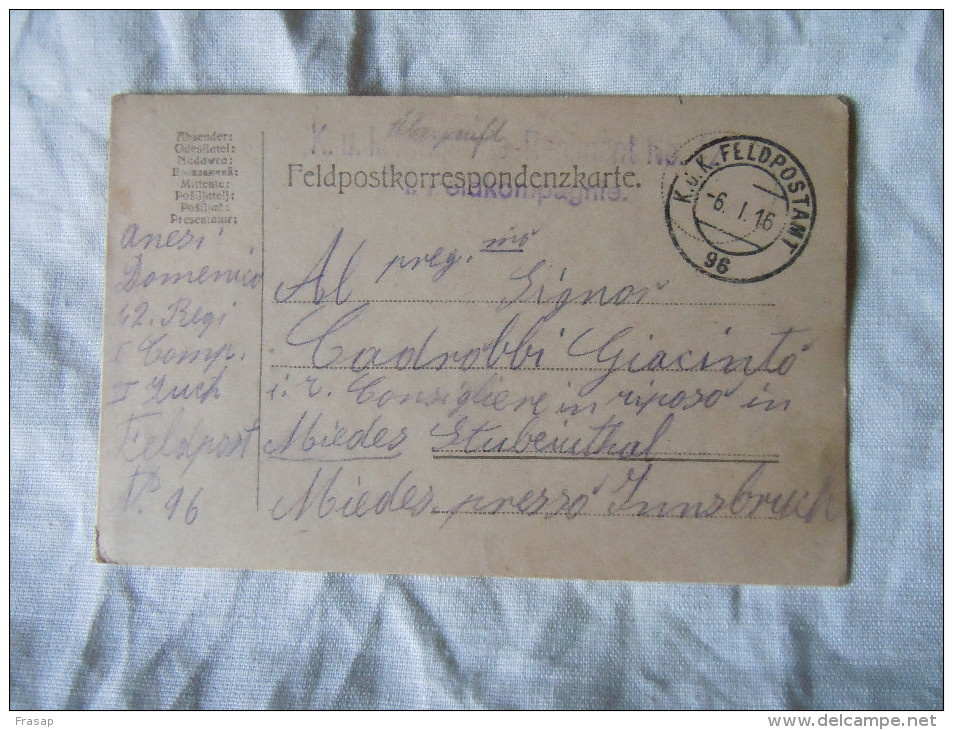 Absender:
Odesílatel:
Nadawca:
Mittente:
Pošiljatelj:
Pošiljač:
Presentator:
K. u. k.
Feldpostkorrespondenzkarte.
Feldkompagnie.
K.u.K. FELDPOSTAMT
-6. I. 16
96
Anesi
Domenico
42. Regi
Comp.
Feldpost
N. 96
Al preg.mo Signor
Cadrobbi Giacinto
i. r. Consigliere in riposo in
Miedes Stubeiuthal
Miedes presso Innsbruck
Frasap
www.delcampe.net